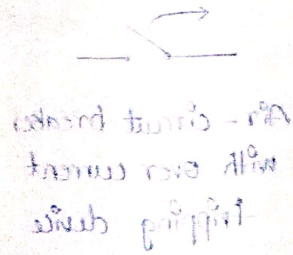 Air - circuit breaker
with over current
tripping device